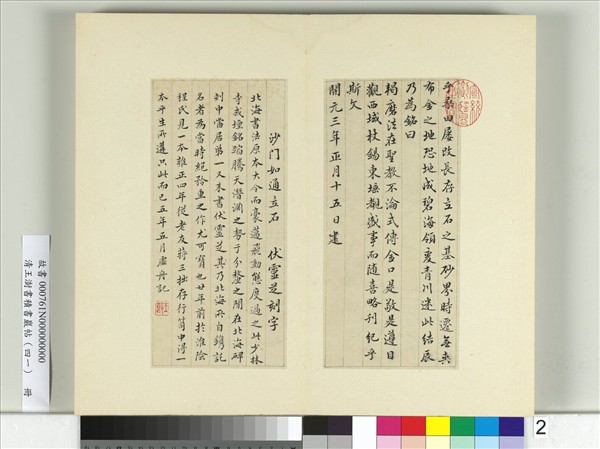 乎桑田屢改長存立石之基砂界時遷無弃
布金之地恐地成碧海嶺变青川述此結庶
乃為銘曰
揭磨法在聖教不淪式傳金口是敬是遵目
觀西域杖錫東堰覩盛事而随喜略刊紀乎
斯文
開元三年正月十五日建
沙门如通立石 伏靈芝刻字
北海書法原本大令而豪蕩飛動態度過之此少林
寺戒壇銘蹈騰天潛渊之勢于分釐之間在北海碑
刻中當居第一又朱書伏靈芝其乃北海所自鐫託
名者為當時絕矜重之作尤可寳也廿年前於淮陰
程氏見一本雍正四年從老友蒋三拙存行笥中得一
本平生所遘只此而已五年五月虚舟記
故書000761N000000000
清王澍書積書巖帖(四一) 冊
2